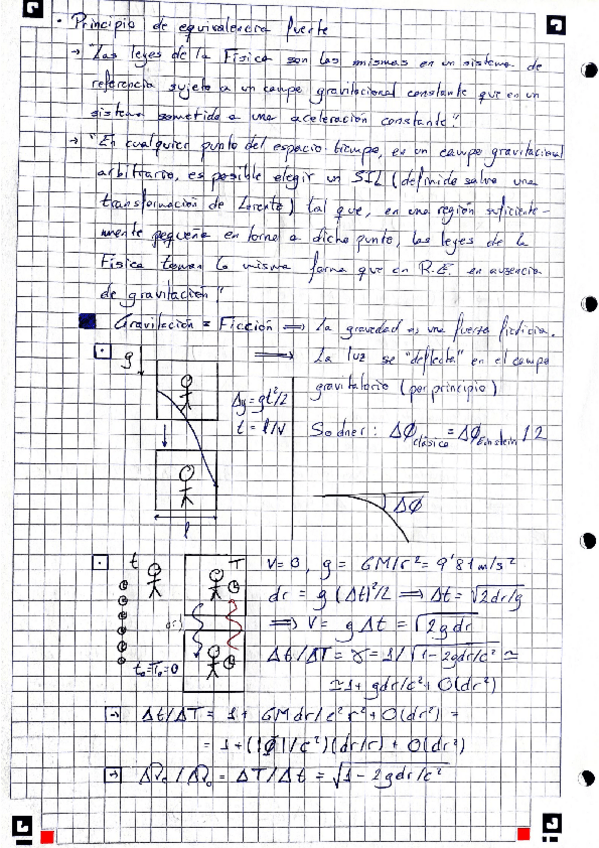 · Principio de equivalencia fuerte
→ "Las leyes de la Física son las mismas en un sistema de
referencia sujeto a un campo gravitacional constante que en un
sistema sometido a una aceleración constante".
→ "En cualquier punto del espacio-tiempo, en un campo gravitacional
arbitrario, es posible elegir un SIL (definido salvo una
transformación de Lorentz) tal que, en una región suficiente-
mente pequeña en torno a dicho punto, las leyes de la
Física toman la misma forma que en R.E. en ausencia
de gravitación".
Gravitación = Ficción ⟹ La gravedad es una fuerza ficticia.
⟹ La luz se "deflecta" en el campo
gravitatorio (por principio)
g
Δy = gt²/2
t = l/v
Soldner: Δϕclásica = ΔϕEinstein / 2
Δϕ
l
t T
V = 0, g = GM/r² = 9'81 m/s²
dr = g (Δt)²/2 ⟹ Δt = √2dr/g
⟹ V = gΔt = √2gdr
t₀ = T₀ = 0
Δt/ΔT = γ = 1/√1-2gdr/c² ≃
≃ 1 + gdr/c² + O(dr²)
→ Δt/ΔT = 1 + GMdr/c²r² + O(dr²) =
= 1 + (|ϕ|/c²)(dr/r) + O(dr²)
= ΔT/Δt = √1-2gdr/c²